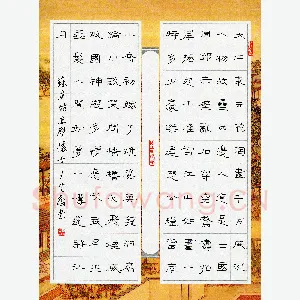 大江東去浪淘盡千古風流
人物故壘西邊人道是三國
周郎赤壁亂石穿空驚濤拍
岸捲起千堆雪江山如畫一
時多少豪傑遙想公瑾當年
小喬初嫁了雄姿英發羽扇
綸巾談笑間檣櫓灰飛煙滅
故國神遊多情應笑我早生
華髮人生如夢一尊還酹江
月
Shufawang.cn